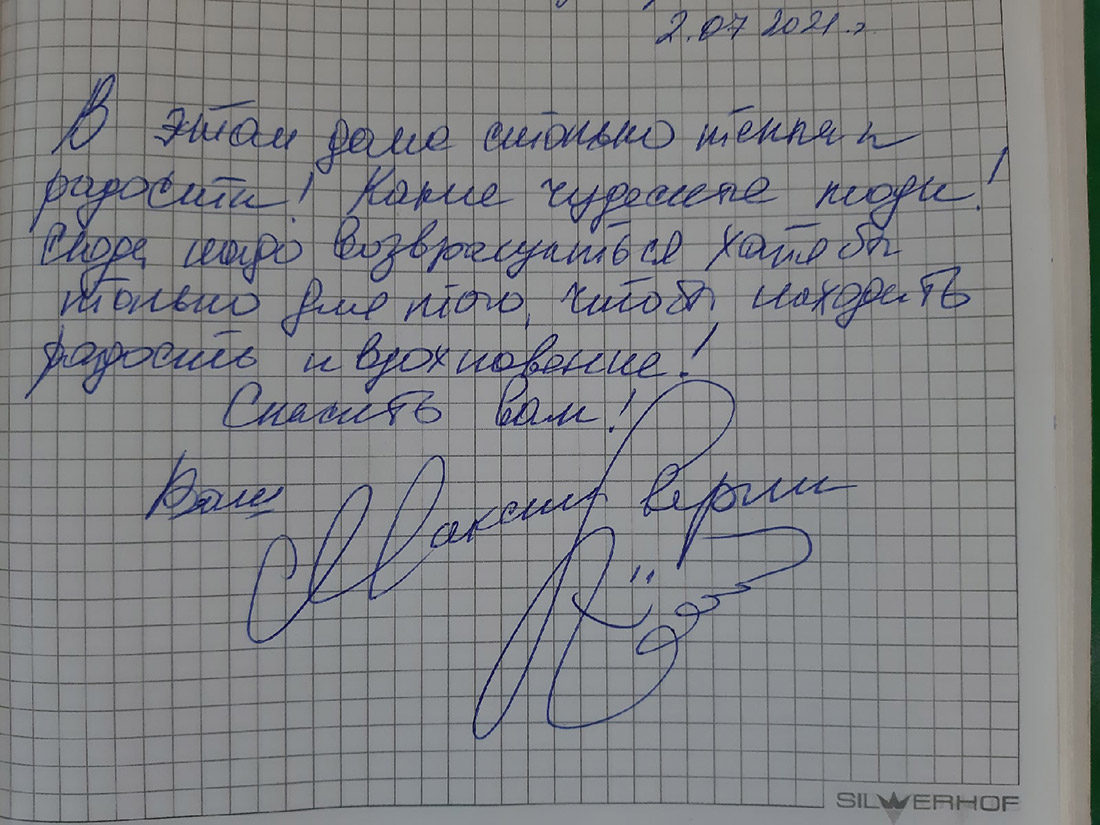 2.07 2021 г
В этом доме столько тепла и
радости! Какие чудесные люди!
Сюда надо возвращаться хотя бы
только для того, чтобы находить
радость и вдохновение!
Спасибо вам!
Ваш Максим
SILWERHOF